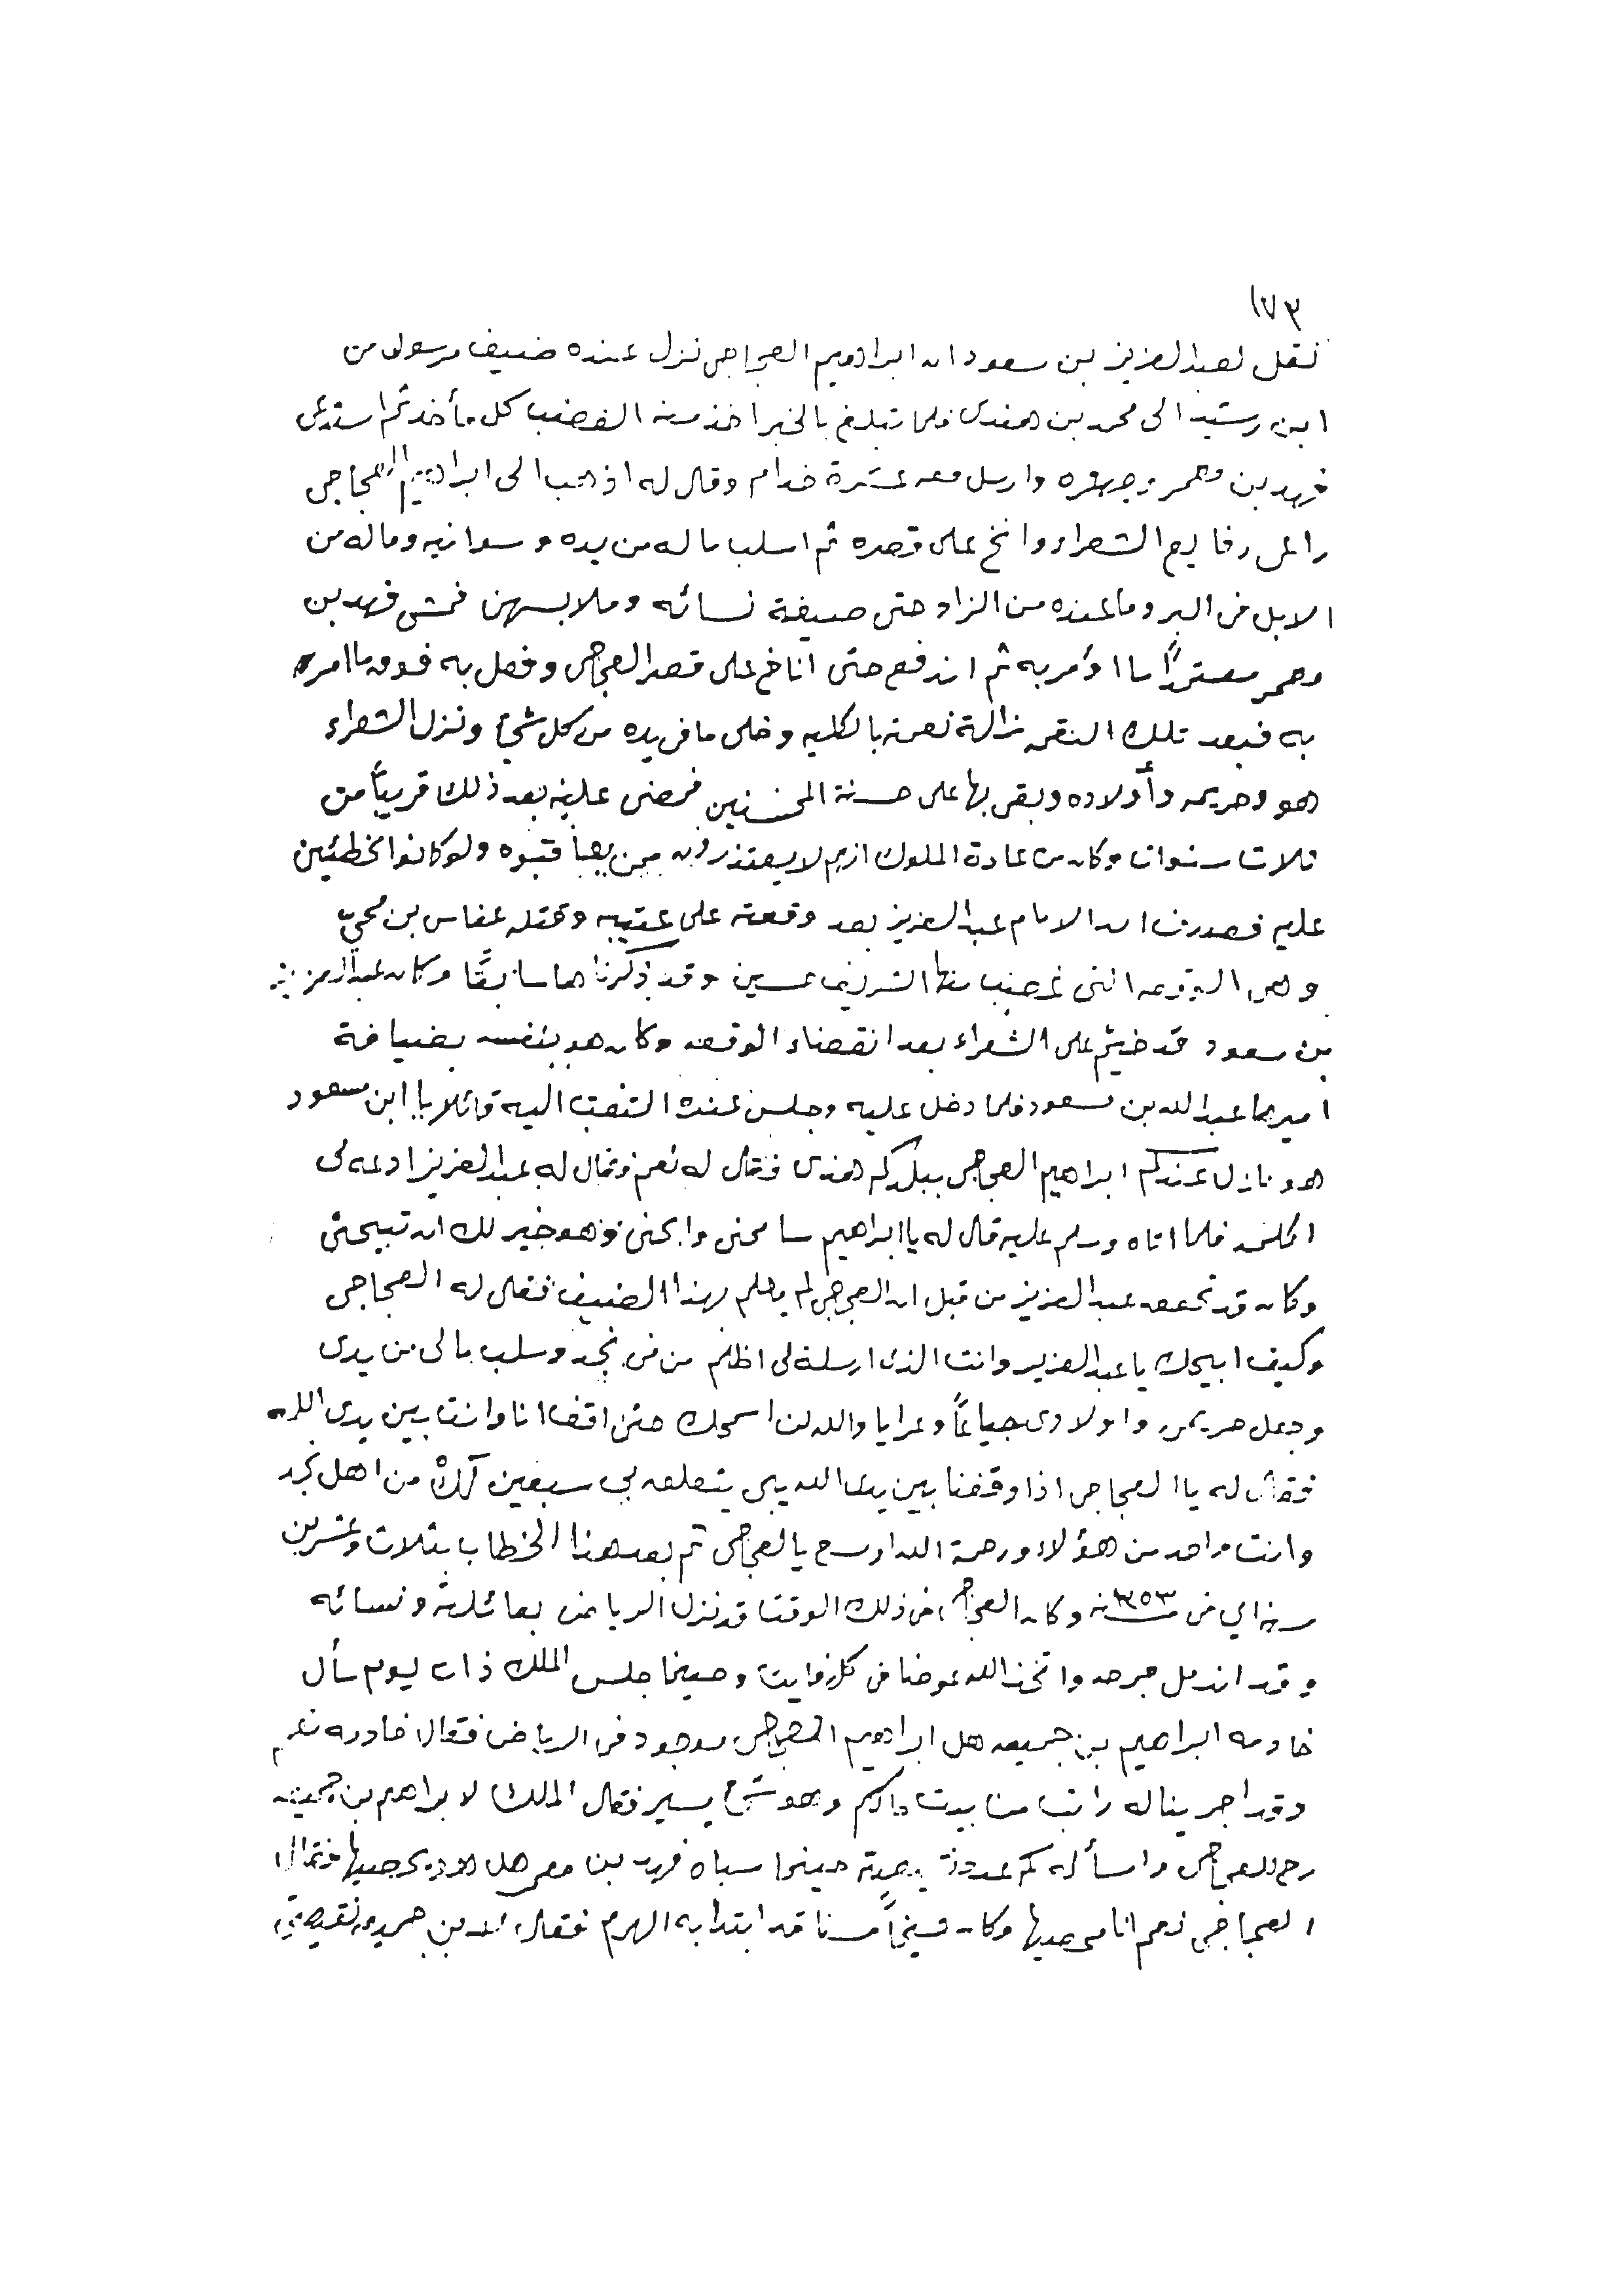 ١٧٣
نقل لعبدالعزيز بن سعود ان ابراهيم العجاجي نزل عنده ضيف مرسول من
ابن رشيد الى محمد بن هندى فلما تبلغ بالخبر اخذ منه الغضب كل مأخذ ثم استدعى
فهد بن معمر وجهزه وارسل معه عشرة خدام وقال له اذهب الى ابراهيم العجاجي
راعى رفايع الشعراء وانخ على قصره ثم اسلب ماله من يده وسوانيه وماله من
الابل فى البر وماعنده من الزاد حتى صيغة نسائه وملابسهن فمشى فهد بن
معمر معتزمًا ما اؤمر به ثم اندفع حتى اناخ على قصر العجاجى وفعل به فوق ما امره
به فبعد تلك النقمه زالة نعمته بالكليه وخلى ما فى يده من كل شئ ونزل الشعراء
هو وحريمه وأولاده وبقى بها على حسنة المحسنين فمضى عليه بعد ذلك قريبًا من
ثلاث سنوات وكان من عادة الملوك انهم لايعتذرون ولو كانوا مخطئين
عليه فصدف ان الامام عبدالعزيز بعد وقعته على عتيبه وقتله عفاس بن محيّ
وهى الوقعه التى غضب منها الشريف حسين وقد ذكرناها سابقًا وكان عبدالعزيز
بن سعود قد خيّم على الشعراء بعد انقضاء الوقعه وكان هو بنفسه بضيافة
اميرها عبدالله بن مسعود فلما دخل عليه وجلس عنده التفت اليه قائلا يا ابن مسعود
هو نازل عندكم ابراهيم العجاجى ببلدكم هندى فقال له نعم وقال له عبدالعزيز ادعه لى
اكلمه فلما اتاه وسلم عليه قال له يا ابراهيم سامحنى وابحنى وهو خير لك ان تبيحنى
وكان قد تحقق عبدالعزيز من قبل ان العجاجى لم يعلم بهذا الضيف فقال له العجاجى
وكيف ابيحك يا عبدالعزيز وانت الذى ارسلة لى اظلم من فى نجد وسلب مالى من يدى
وجعل حريمى واولادى جياعًا وعرايا والله لن اسمحك حتى اقف انا وانت بين يدى الله
فقال له يا العجاجى اذا وقفنا بين يدى الله يبى يتعلق بى سبعين من اهل نجد
وانت واحد من هؤلاء ورحمة الله اوسع يا لعجاجى ثم بعد هذا الخطاب بثلاث وعشرين
سنه اي فى سنة ١٣٥٣ وكان العجاجى فى ذلك الوقت قد نزل الرياض بعائلته ونسائه
وقد اندمل جرحه واتخذ الله عوضا فى كل فوايت وحينما جلس الملك ذات ليوم سأل
خادمه ابراهيم بن جميعه هل ابراهيم العجاجى موجود فى الرياض فقال خادمه نعم
وقد اجرينا له راتب من بيت مالكم وهو شئ يسير فقال الملك لابراهيم بن جميعه
رح للعجاجى واسأله كم عدة حينما سباه فهد بن معمر هل هو فقال
العجاجى نعم انا وكان شيخًا مسنا قد ابتدا به الهرم فقال